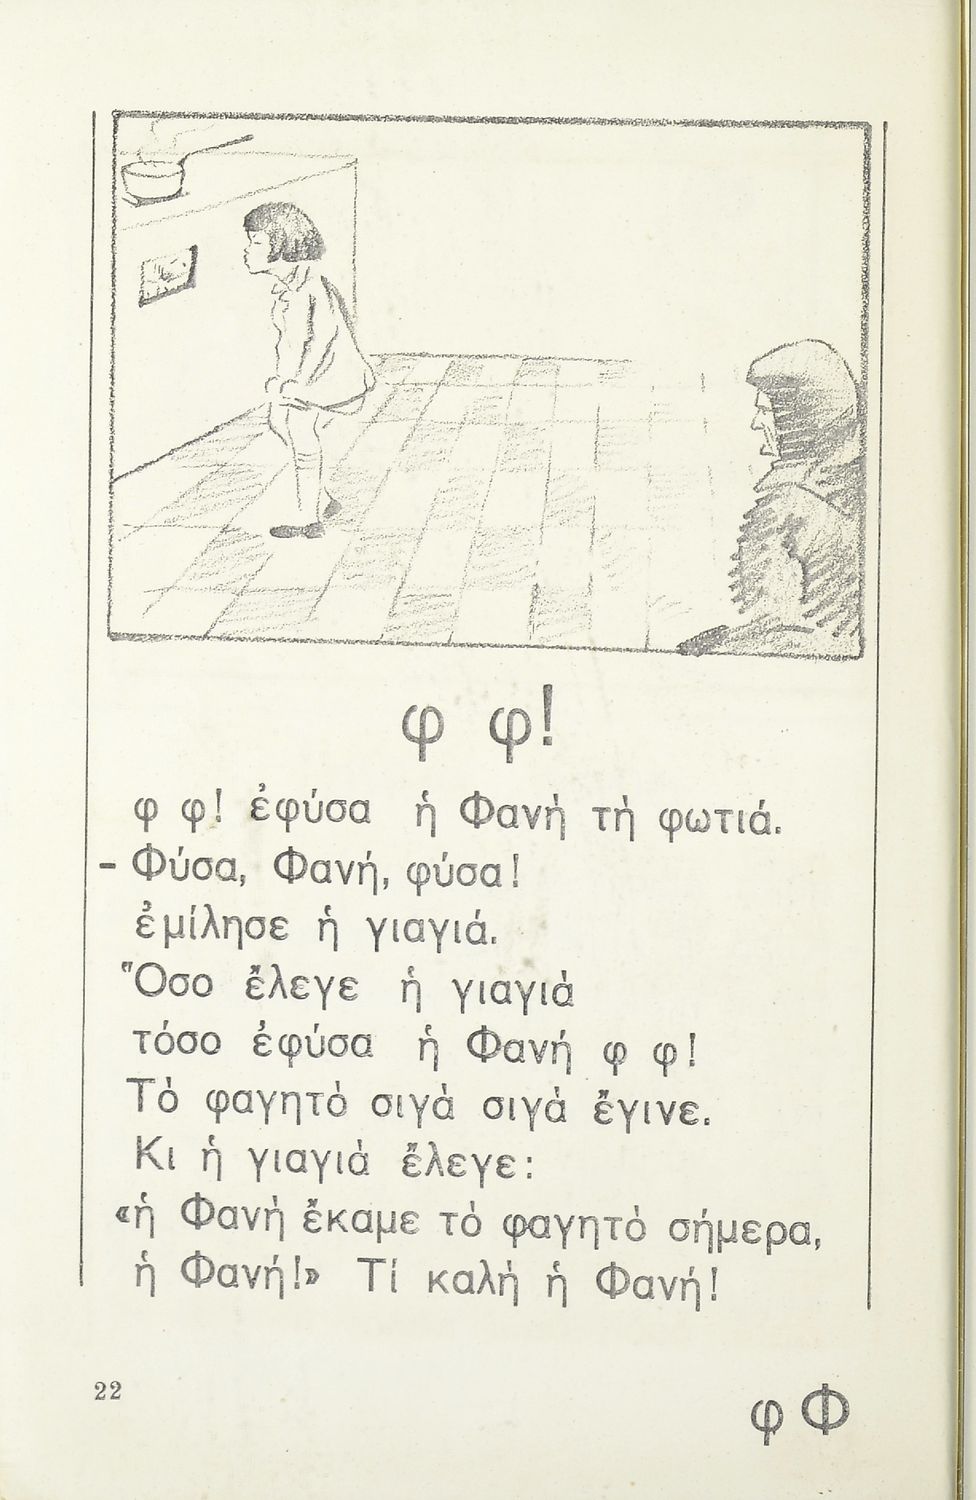 φ φ!
φ φ! ἐφύσα ἡ Φανὴ τὴ φωτιά.
- Φύσα, Φανή, φύσα!
ἐμίλησε ἡ γιαγιά.
Ὅσο ἔλεγε ἡ γιαγιὰ
τόσο ἐφύσα ἡ Φανή φ φ!
Τὸ φαγητὸ σιγὰ σιγὰ ἔγινε.
Κι ἡ γιαγιὰ ἔλεγε:
«ἡ Φανὴ ἔκαμε τὸ φαγητὸ σήμερα,
ἡ Φανή!» Τί καλὴ ἡ Φανή!
22
φ Φ